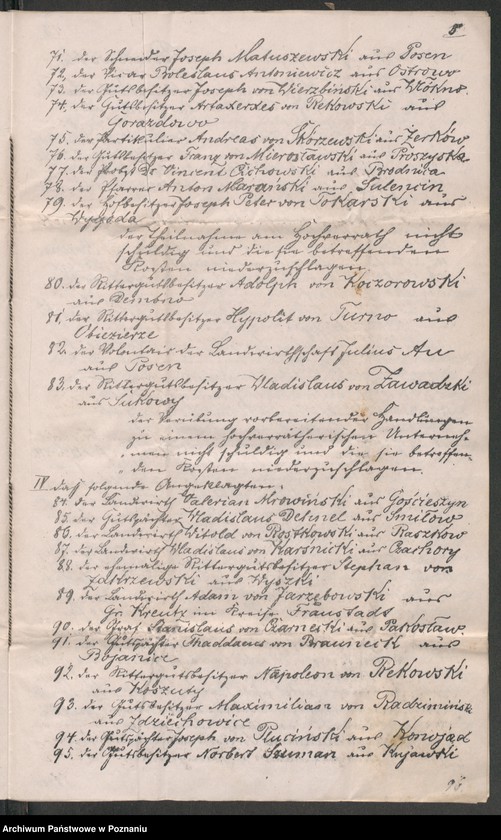 5
71. der Schneider Joseph Matuszewski aus Posen
72. der Vicar Boleslaus Antoniewicz aus Ostrowo
73. der Gutsbesitzer Joseph von Wierzbiński aus
74. der Gutsbesitzer Artaxerxes von Rekowski aus
Gorazdowo
75. der Partikulier Andreas von Skórzewski aus Zerków
76. der Gutsbesitzer Franz von Mieroslawski aus Proszyska
77. der Probst Dr Vincent Cichowski aus Brodnica
78. der Pfarrer Anton Marański aus Sulencin
79. der Hofbesitzer Joseph Peter von Tokarski aus
Wygoda
der Theilnahme am Hochverrath nicht
schuldig und die sie betreffenden
Kosten niederzuschlagen.
80. der Rittergutsbesitzer Adolph von Koczorowski
aus Dembno
81. der Rittergutsbesitzer Hypolit von Turno aus
Obiezierze
82. der Volontair der Landwirthschaft Julius Au
aus Posen
83. der Rittergutsbesitzer Wladislaus von Zawadzki
aus Sukowy
der Verübung vorbereitender Handlungen
zu einem hochverrätherischen Unterneh-
men nicht schuldig und die sie betreffen-
den Kosten niederzuschlagen.
IV daß folgende Angeklagten:
84. der Landwirth Valerian Mrowiński aus Gościeszyn
85. der Gutspächter Wladislaus Dehnel aus Smiłow
86. der Landwirth Witold von Rostkowski aus Raszkow
87. der Landwirth Wladislaus von Karsnicki aus Czarhory
88. der ehemalige Rittergutsbesitzer Stephan von
Zakrzewski aus Wyszki
89. der Landwirth Adam von Jarzębowski aus
Gr. Kreutz im Kreise Fraustadt
90. der Graf Stanislaus von Czarnecki aus Pakosław
91. der Gutspächter Thaddaeus von Brauneck aus
Bojanice
92. der Rittergutsbesitzer Napoleon von Rekowski
aus Koszuty
93. der Gutsbesitzer Maximilian von Radzimiński
aus Zdziechowice
94. der Gutspächter Joseph von Ruciński aus Konojad
95. der Gutsbesitzer Norbert Szuman aus Kujawski
96
Archiwum Państwowe w Poznaniu